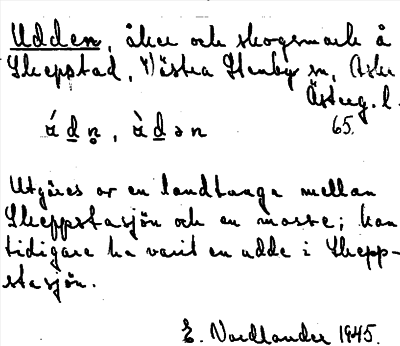 Udden, åker och skogsmark å
Skeppstad, Västra Stenby sn, Aska
Österg. l.
65.
á d n̥, à d ə n
Utgöres av en landtunga mellan
Skeppstasjön och en mosse; kan
tidigare ha varit en udde i Skepp-
stasjön.
E. Nordlander 1945.